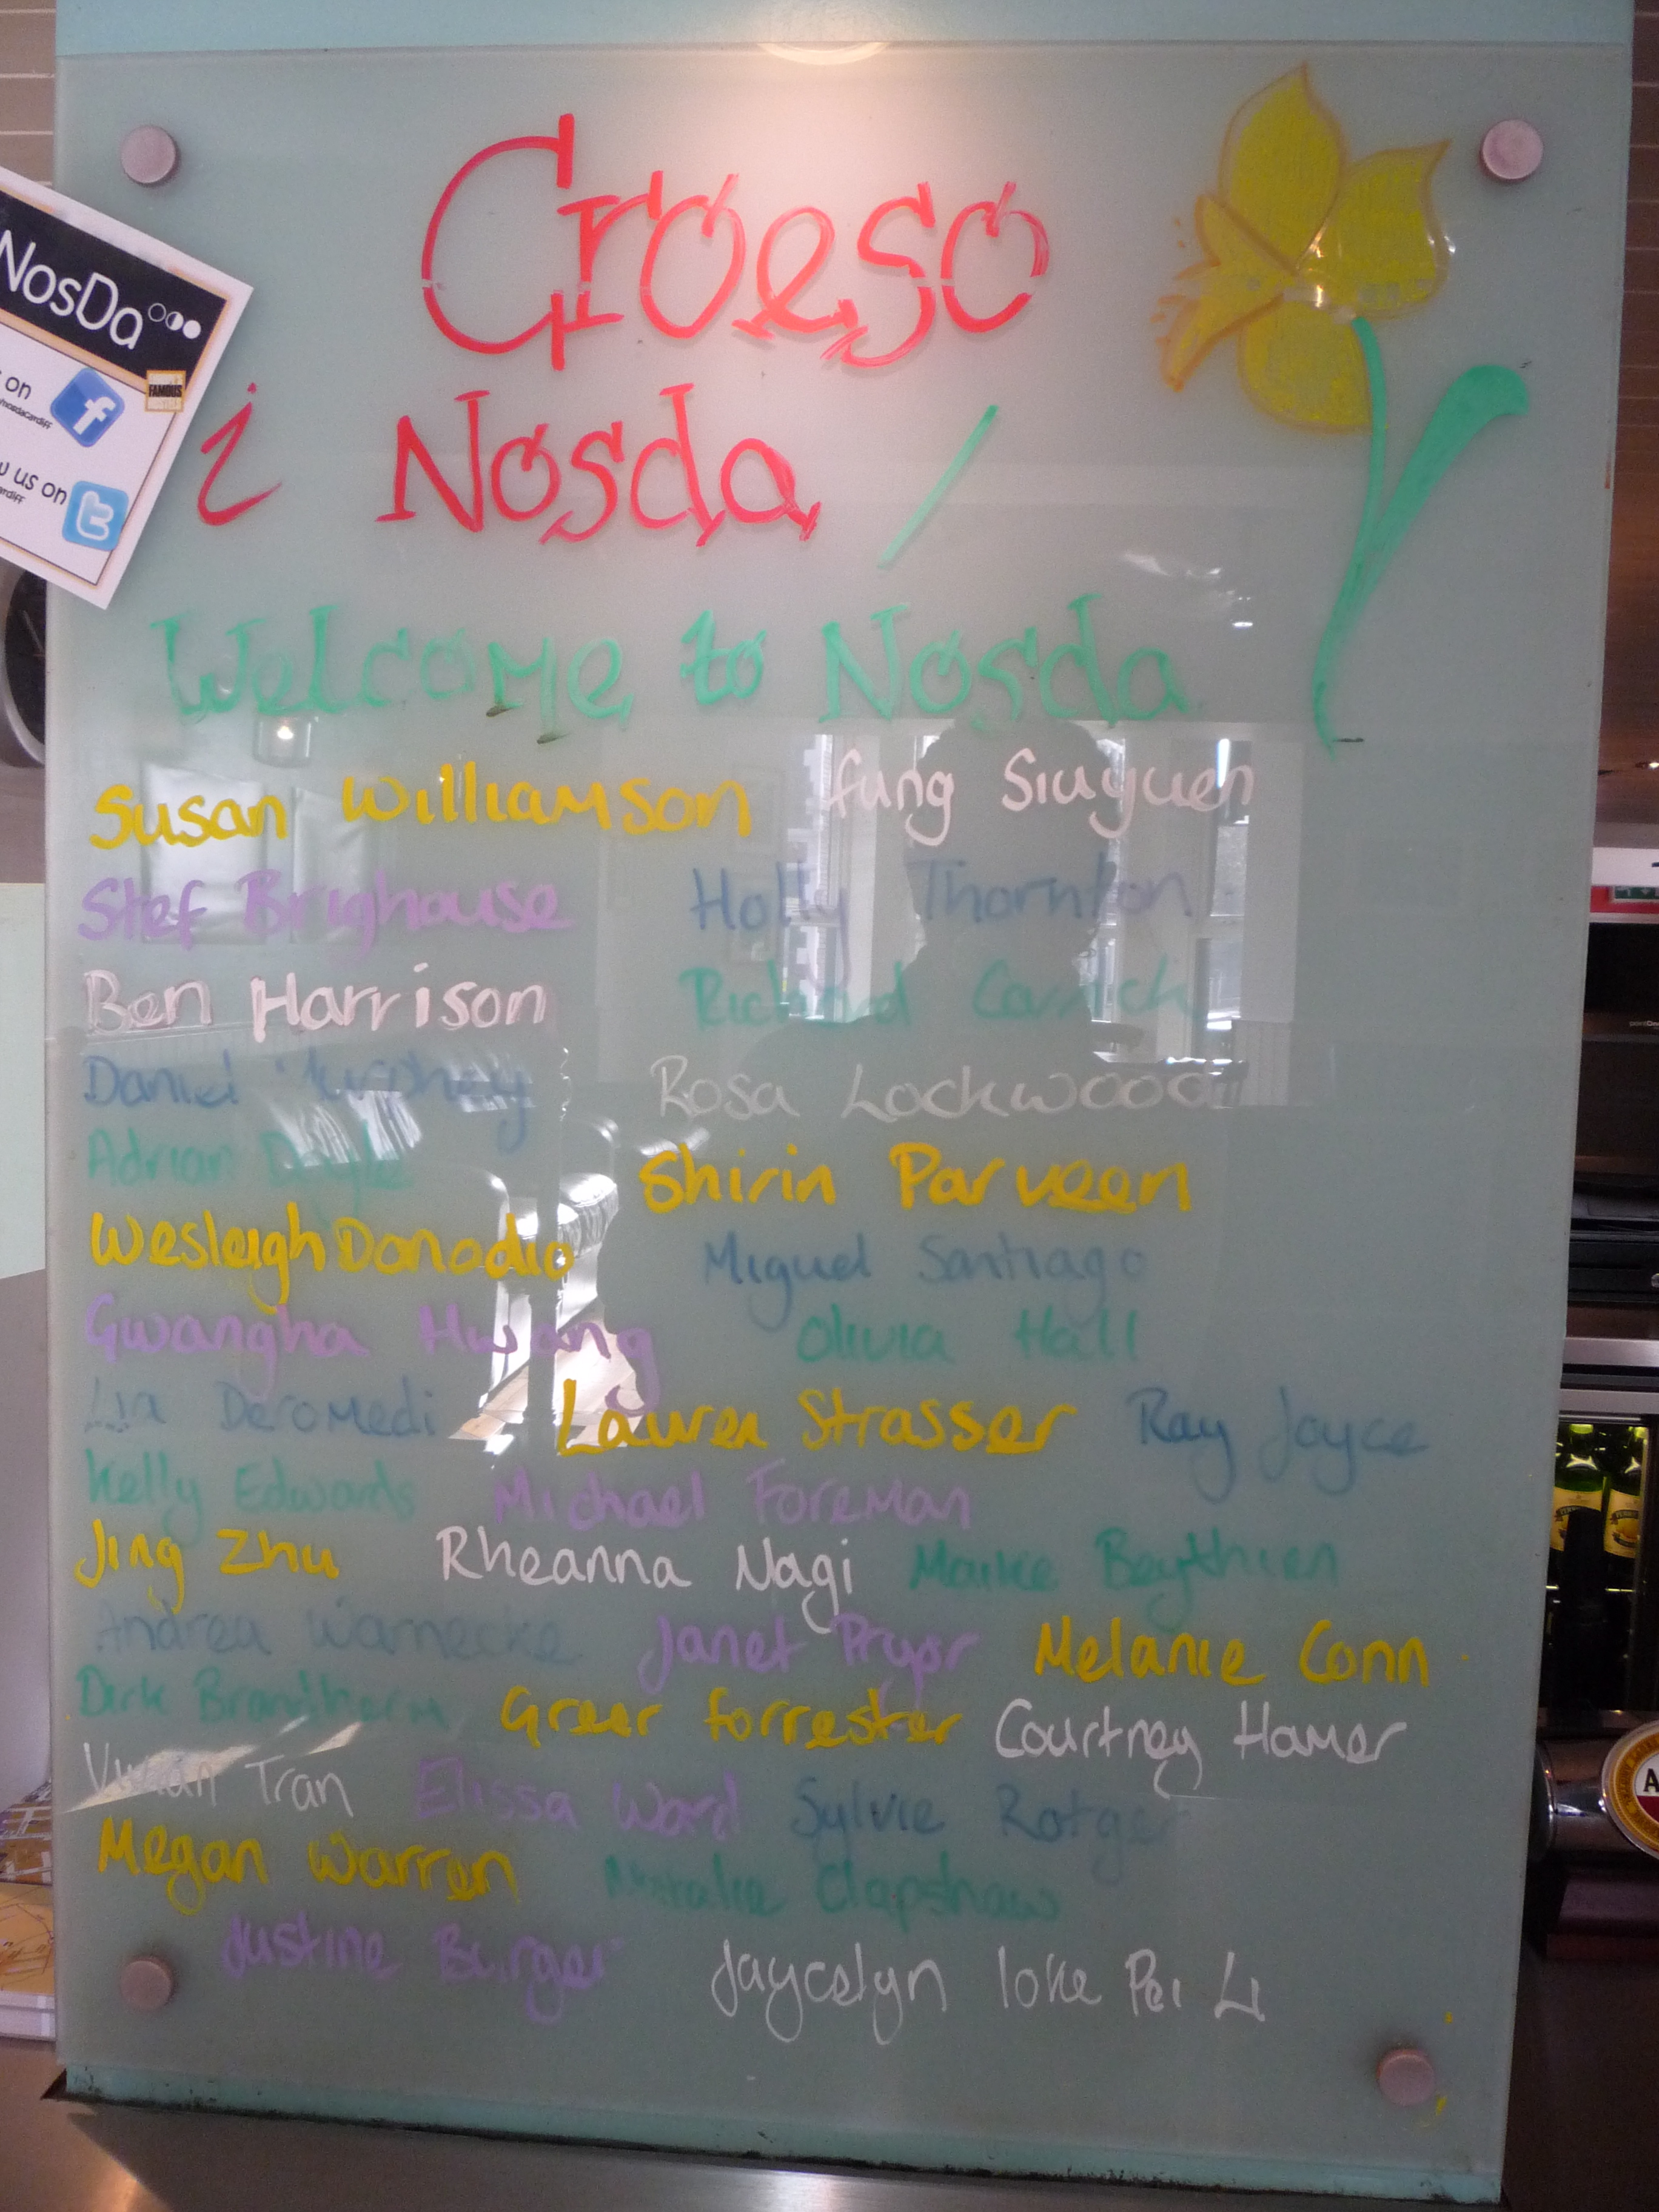 Croeso
i Nosda /
Welcome to Nosda
NosDa
on
f
FAMOUS
us on
t
Susan Williamson fung Siuyuen
Stef Brighouse Holly Thornton
Ben Harrison Richard Carrick
Daniel Rosa Lockwood
Adrian Doyle Shirin Parveen
Wesleigh Donodio Miguel Santiago
Gwangha Hwang Olivia Hall
Lia Deromedi Lauren Strasser Ray Joyce
Kelly Edwards Michael Foreman
Jing Zhu Rheanna Nagi Maike Beythien
Andrea Warnecke Janet Pryor Melanie Conn
Dirk Brandherm Greer forrester Courtney Hamer
Vivian Tran Elissa Ward Sylvie Rotger
Megan Warren Natalie Clapshaw
Justine Burger Jaycelyn loke Pei Li